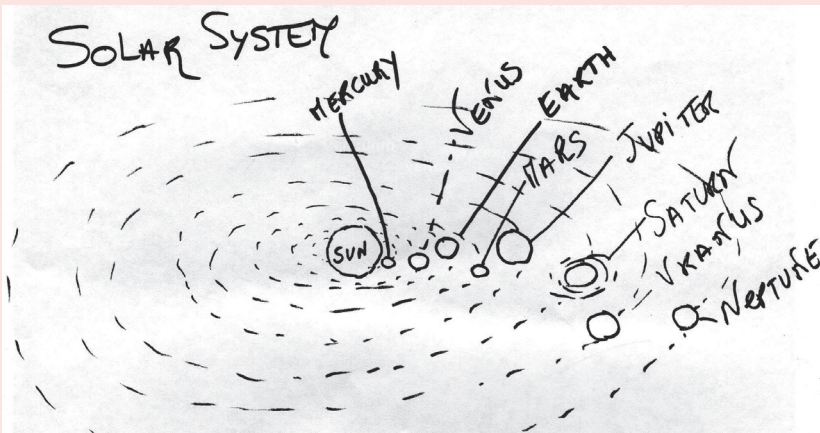 SOLAR SYSTEM
MERCURY
VENUS
EARTH
MARS
JUPITER
SATURN
URANUS
NEPTUNE
SUN